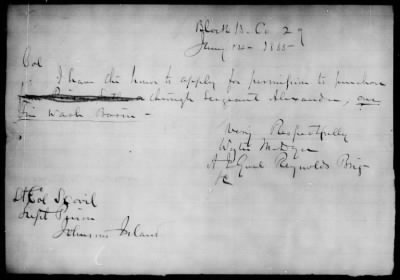 Block 13. Co 29
Jany 14 - 1865 -
Col
I have the honor to apply for permission to purchase
through Sergeant Alexander, one
Tin Wash Basin -
Very Respectfully
A Genl Reynolds Brig
Lt Col Scovil
Supt Prison
Johnsons Island